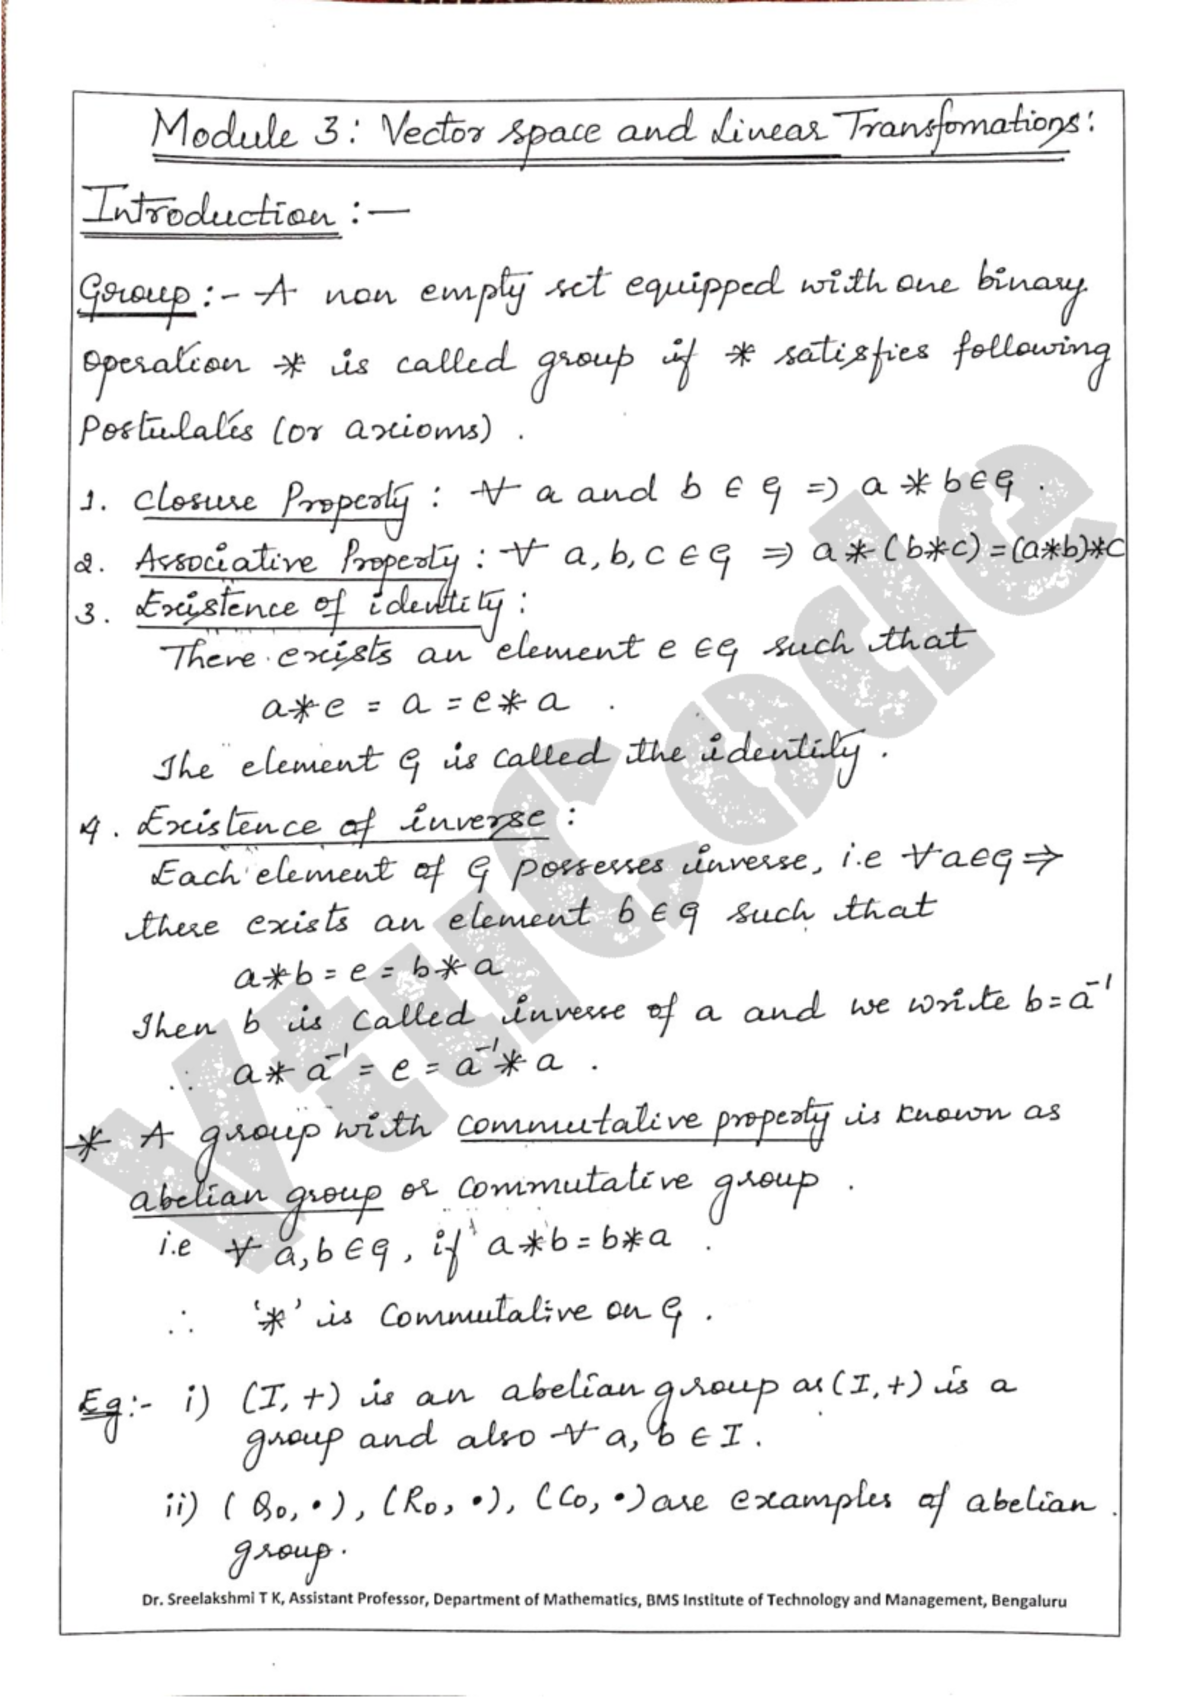 Module 3: Vector space and Linear Transfomations:
Introduction :-
Group :- A non empty set equipped with one binary
operation * is called group if * satisfies following
Postulates (or axioms) .
1. Closure Property : ∀ a and b ∈ G ⇒ a * b ∈ G .
2. Associative Property : ∀ a, b, c ∈ G ⇒ a*(b*c)=(a*b)*c
3. Existence of identity :
There exists an element e ∈ G such that
a*e = a = e*a .
The element G is called the identity .
4. Existence of inverse :
Each element of G possesses inverse, i.e ∀ a∈G ⇒
there exists an element b ∈ G such that
a*b = e = b*a
Then b is called inverse of a and we write b=a⁻¹
∴ a* a⁻¹ = e = a⁻¹* a .
* A group with commutative property is known as
abelian group or commutative group .
i.e ∀ a, b ∈ G, if a*b = b*a .
∴ '*' is Commutative on G .
Eg:- i) (I, +) is an abelian group as (I, +) is a
group and also ∀ a, b ∈ I .
ii) (Q₀, •), (R₀, •), (C₀, •) are examples of abelian
group.
Dr. Sreelakshmi T K, Assistant Professor, Department of Mathematics, BMS Institute of Technology and Management, Bengaluru
VtuCode